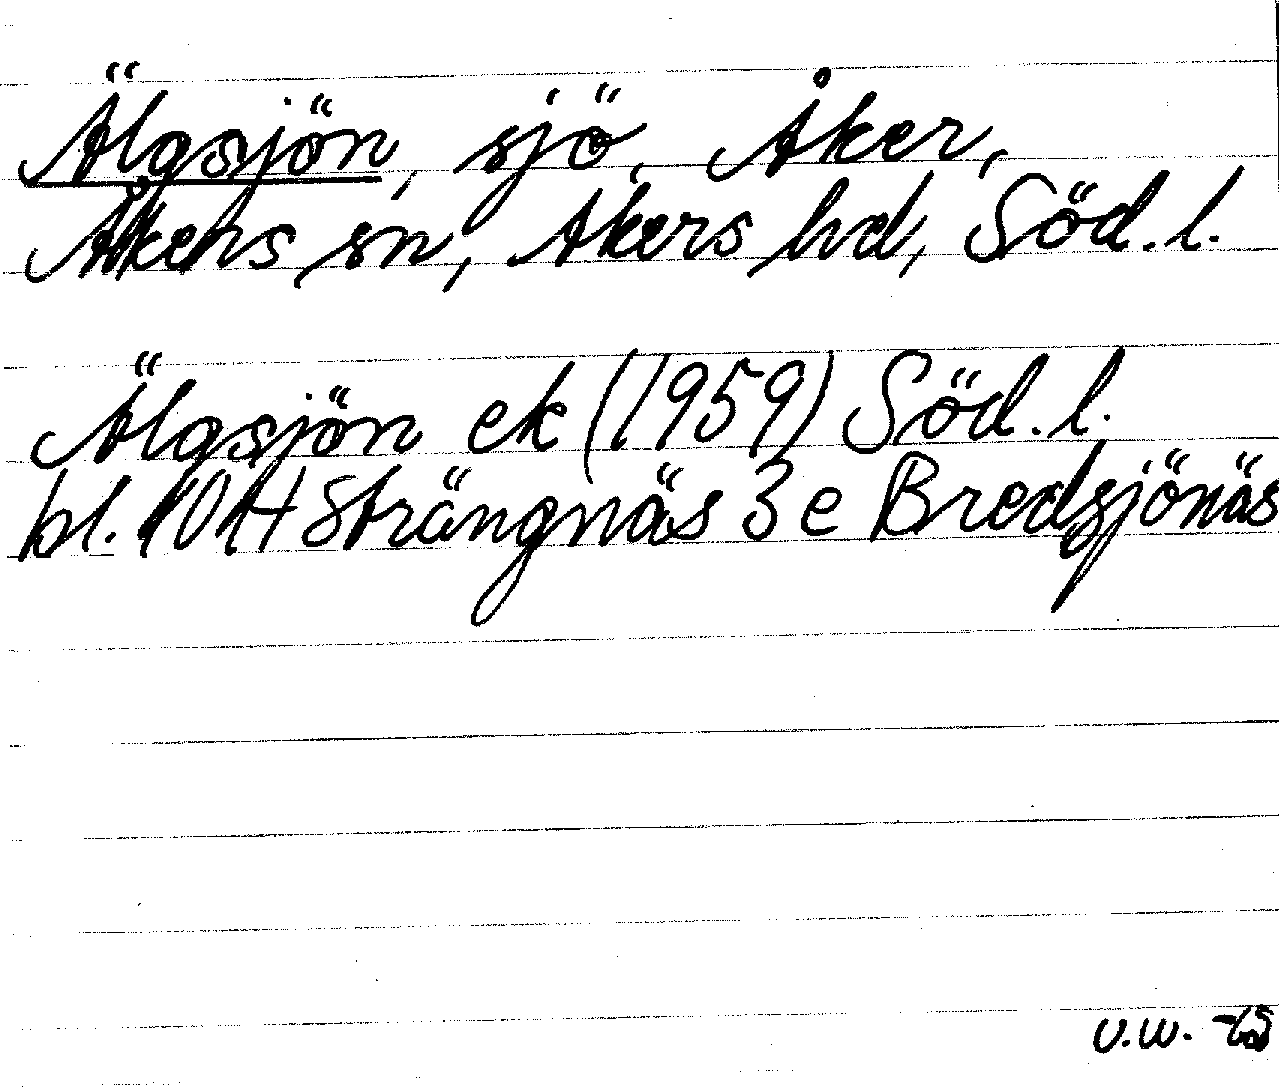 Älgsjön, sjö, Åker,
Åkers sn, Åkers hd, Söd. l.
Älgsjön ek (1959) Söd. l.
bl. 10 H Strängnäs 3 e Bredsjönäs
U.W. -65